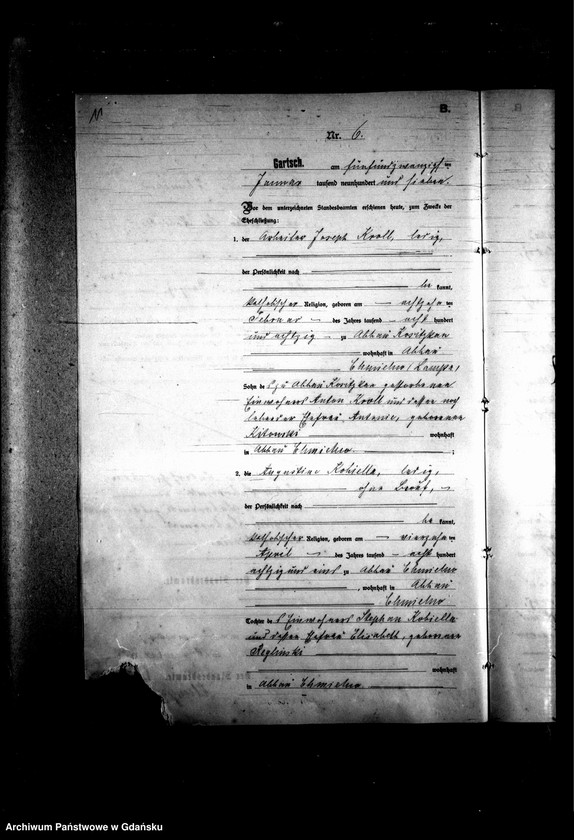 B.
Nr. 6.
Gartsch. am fünfundzwanzigsten
Januar tausend neunhundert und sieben.
Vor dem unterzeichneten Standesbeamten erschienen heute, zum Zwecke der
Eheschließung:
1. der Arbeiter Joseph Kroll, ledig,
der Persönlichkeit nach
be kannt,
katholischer Religion, geboren am achtzehnten
Februar des Jahres tausend acht hundert
und achtzig zu Abbau
wohnhaft in Abbau
Chmielno
Sohn des zu Abbau verstorbenen
Einwohners Anton Kroll und dessen noch
lebender Ehefrau Antonie, geborenen
wohnhaft
in Abbau Chmielno. ;
2. die Augustine Kobiella, ledig,
ohne Beruf,
der Persönlichkeit nach
be kannt,
katholischer Religion, geboren am vierzehnten
April des Jahres tausend acht hundert
achtzig und eins zu Abbau Chmielno
, wohnhaft in Abbau
Chmielno
Tochter des Einwohners Stephan Kobiella
und dessen Ehefrau Elisabeth, geborenen
Reglinski
wohnhaft
in Abbau Chmielno
Archiwum Państwowe w Gdańsku